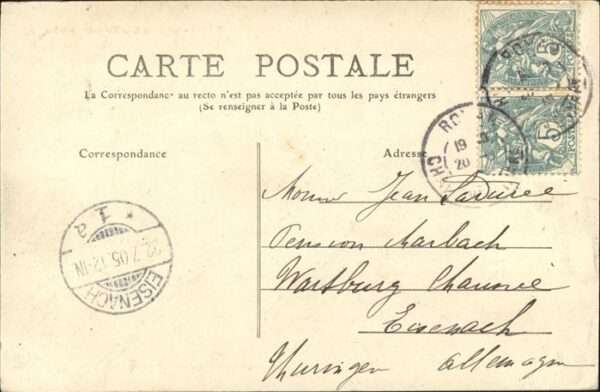 CARTE POSTALE
La Correspondance au recto n'est pas acceptée par tous les pays étrangers
(Se renseigner à la Poste)
Correspondance
Adresse
5
5
19
20
Jean
Pension Marbach
Wartburg
Eisenach
Thuringen Allemagne
* 1 a
22.7.05.12-1N.
EISENACH